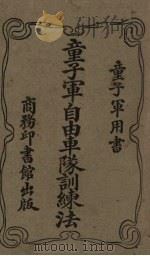 童子軍用書
童子軍自由車隊訓練法
商務印書館出版
www.toutong.com